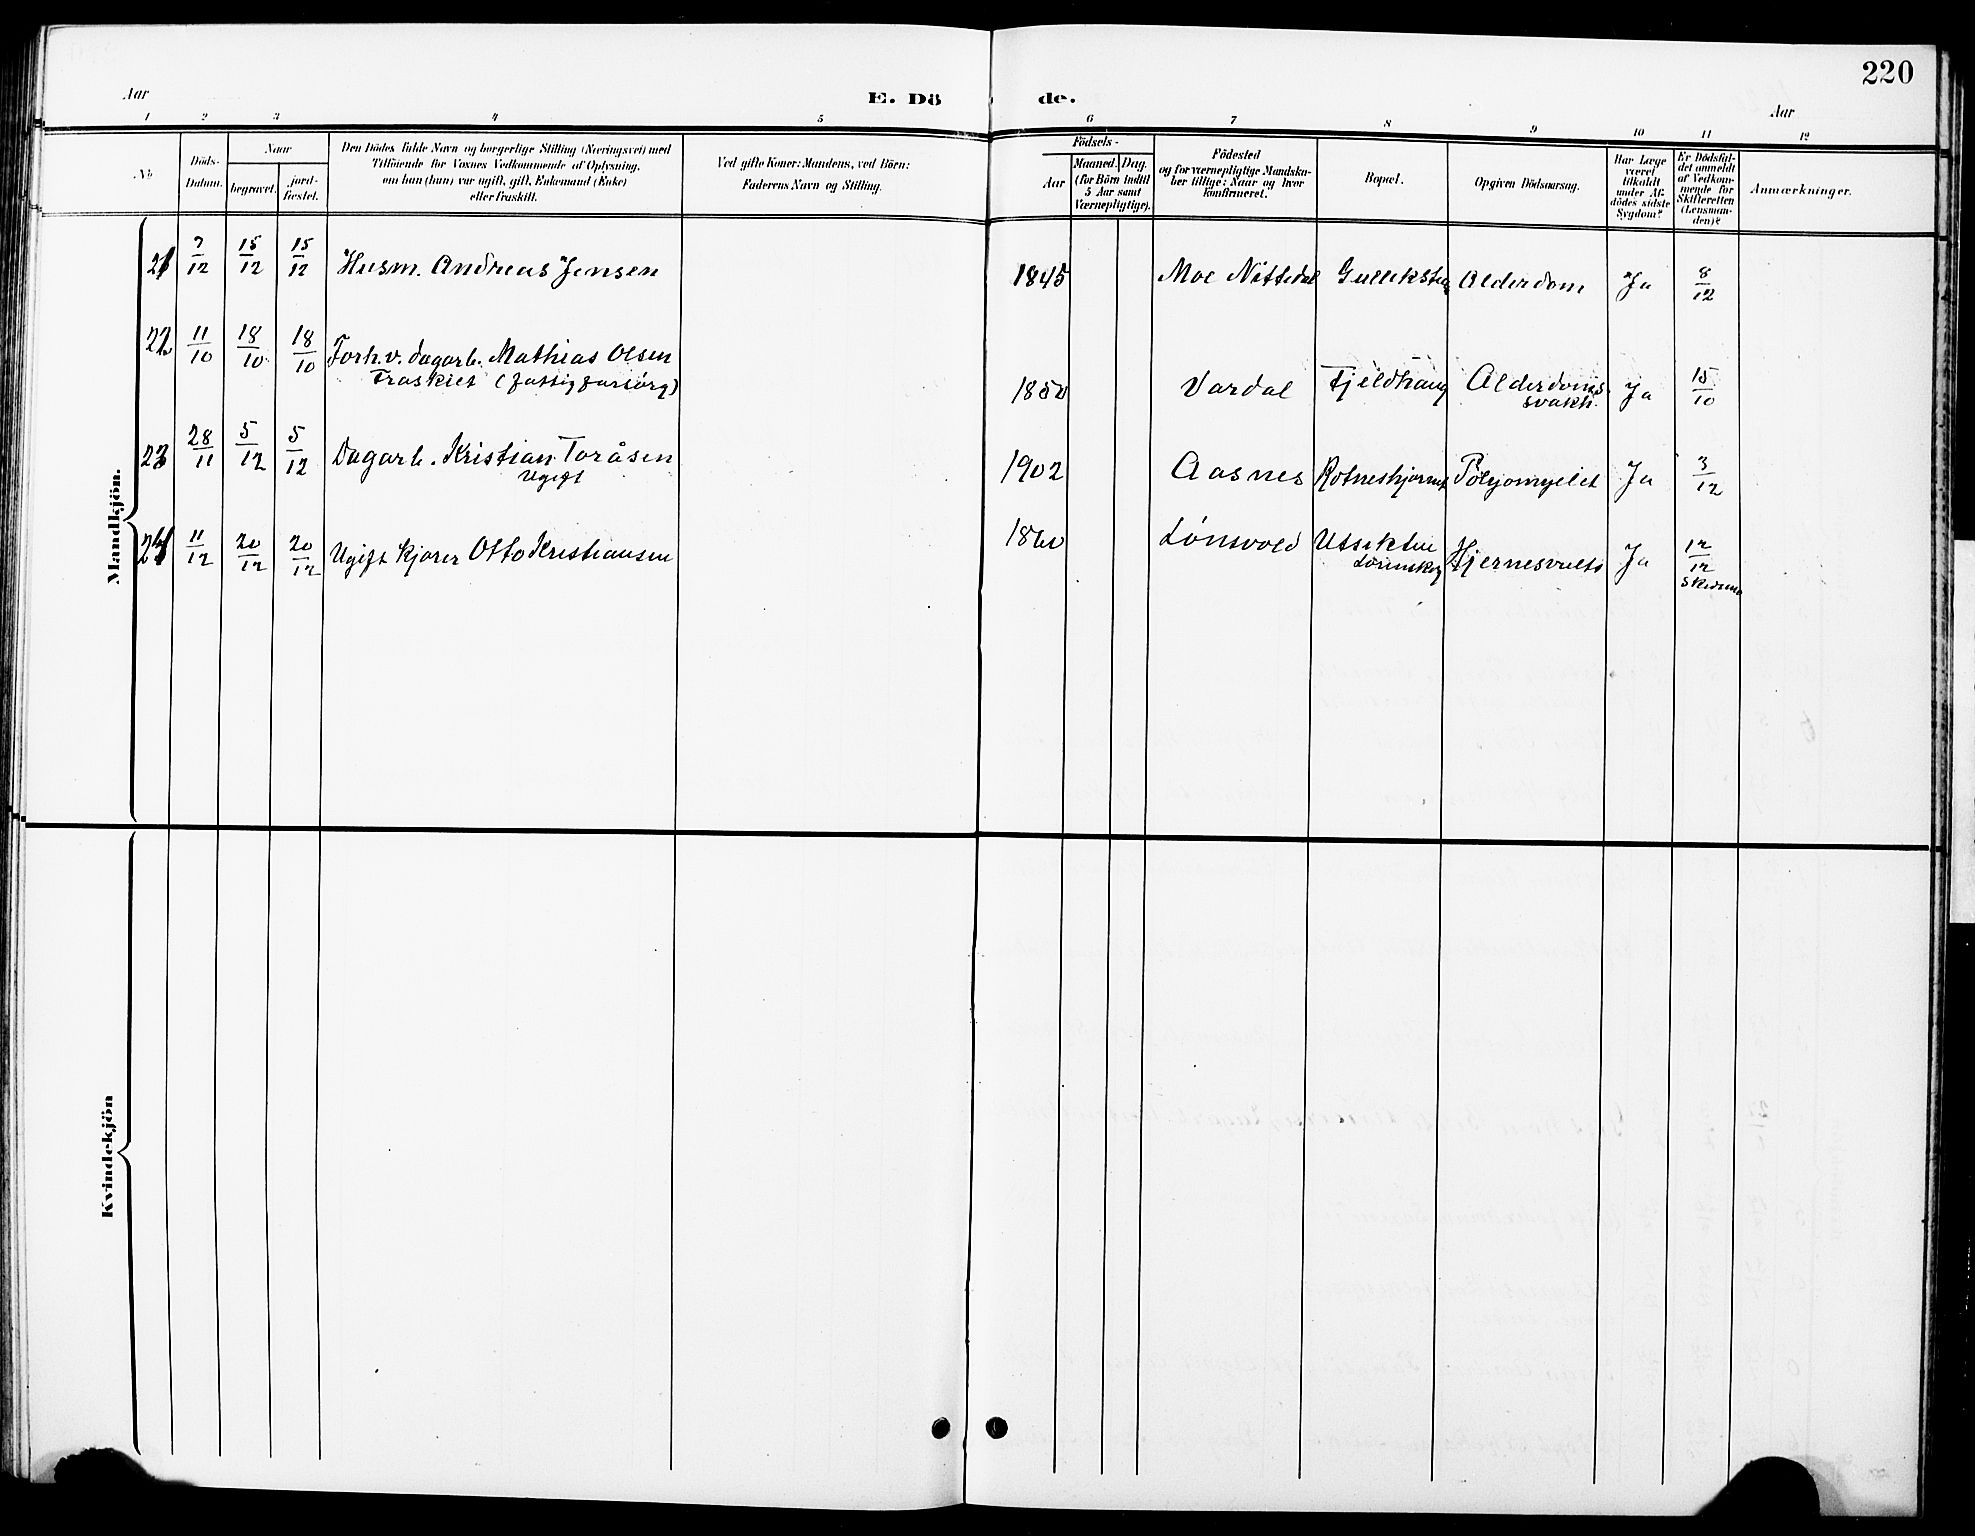 220
Aar
E. Dö de.
Aar
1 2 3 4 5 6 7 8 9 10 11 12
No
Döds-Datum.
Naar
begravet.
jord-fæstet.
Den Dödes fulde Navn og borgerlige Stilling (Næringsvei) med
Tilföiende for Voxnes Vedkommende af Oplysning,
om han (hun) var ugift, gift, Enkemand (Enke)
eller fraskilt.
Ved gifte Koner: Mandens, ved Börn:
Faderens Navn og Stilling.
Födsels-
Aar
Maaned. Dag.
(for Börn indtil
5 Aar samt
Værnepligtige).
Födested
og for værnepligtige Mandska-
ber tillige: Naar og hvor
konfirmeret.
Bopæl.
Opgiven Dödsaarsag.
Har Læge
været
tilkaldt
under Af-
dödes sidste
Sygdom?
Er Dödsfal-
det anmeldt
af Vedkom-
mende for
Skifteretten
(Lensman-
den)?
Anmærkninger.
Mandkjön.
21 7/12 15/12 15/12 Husm. Andreas Jensen 1845 Moe Nittedal Alderdom Ja 8/12
22 11/10 18/10 18/10 Forh.v. dagarb. Mathias Olsen
Fraskilt (fattigforsörg) 1850 Vardal Fjeldhaug Alderdoms
svakh. Ja 15/10
23 28/11 5/12 5/12 Dagarb. Kristian Toråsen
Ugift 1902 Aasnes Rotneskjernet Polyomyelit Ja 3/12
24 11/12 20/12 20/12 Ugift kjörer Otto Kristiansen Lönsvold Utsikten
Lörenskog Ja 12/12
Kvindekjön